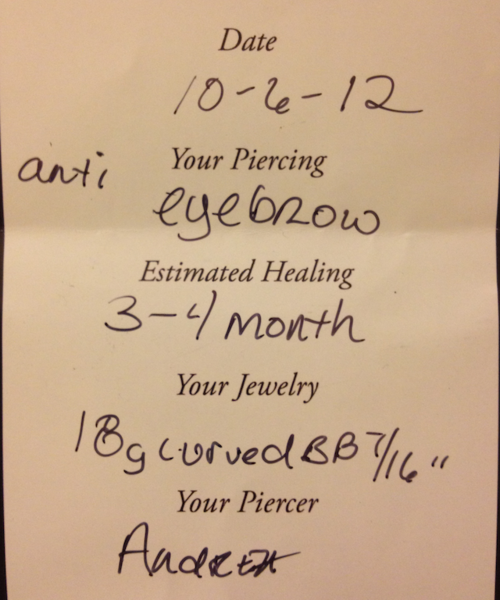 Date
10-6-12
Your Piercing
anti
eyebrow
Estimated Healing
3-4 month
Your Jewelry
18g curved BB 7/16"
Your Piercer
Andrea